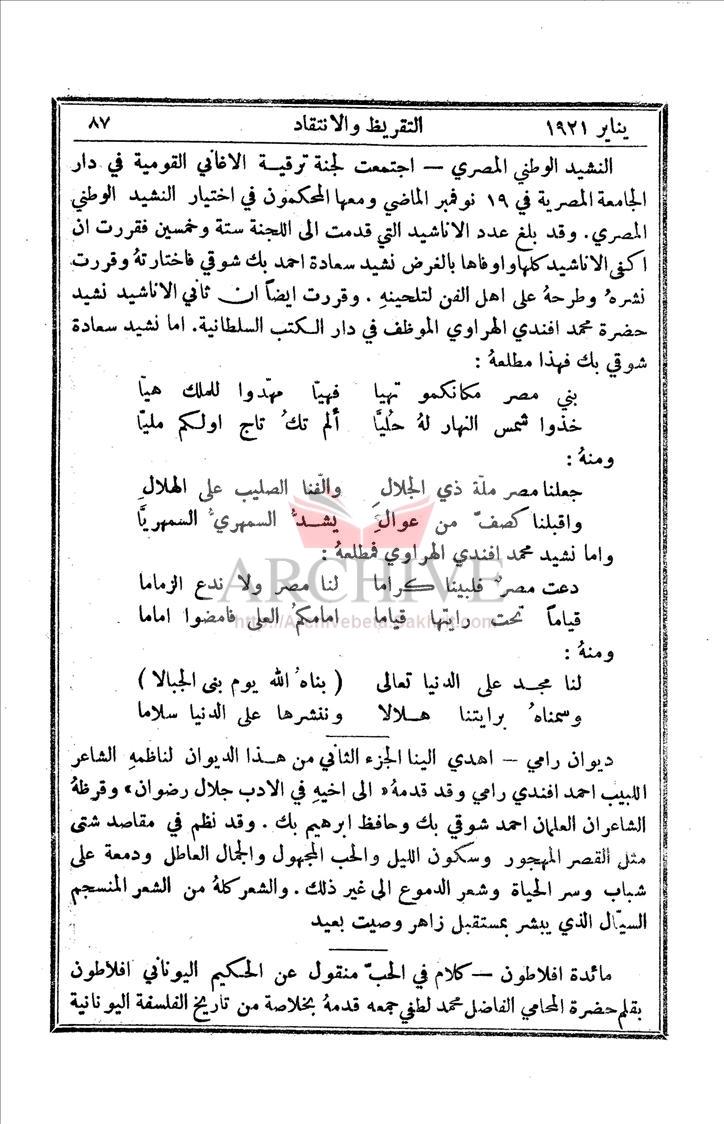 يناير ١٩٢١ التقريظ والانتقاد ٨٧
النشيد الوطني المصري — اجتمعت لجنة ترقية الاغاني القومية في دار
الجامعة المصرية في ١٩ نوفمبر الماضي ومعها المحكمون في اختيار النشيد الوطني
المصري. وقد بلغ عدد الاناشيد التي قدمت الى اللجنة ستة وخمسين فقررت ان
اكفى الاناشيد كلها واوفاها بالغرض نشيد سعادة احمد بك شوقي فاختارتهُ وقررت
نشرهُ وطرحهُ على اهل الفن لتلحينهِ . وقررت ايضاً ان ثاني الاناشيد نشيد
حضرة محمد افندي الهراوي الموظف في دار الكتب السلطانية. اما نشيد سعادة
شوقي بك فهذا مطلعهُ :
بني مصر مكانكمو تهيا فهيّا مهّدوا للملك هيّا
خذوا شمس النهار لهُ حُليَّا ألم تكُ تاج اولكم مليّا
ومنهُ :
جعلنا مصر ملّة ذي الجلالِ والّفنا الصليب على الهلالِ
واقبلنا كصفّ من عوالِ يشدُّ السمهريُّ السمهريَّا
واما نشيد محمد افندي الهراوي فمطلعهُ :
ARCHIVE
دعت مصرٌ فلبينا كراما لنا مصر ولا ندع الزماما
قياماً تحت رايتها قياما امامكمُ العلى فامضوا اماما
http://Archivebeta.Sakhrit.com
ومنهُ :
لنا مجد على الدنيا تعالى (بناهُ الله يوم بنى الجبالا)
وسمناهُ برايتنا هلالا وننشرها على الدنيا سلاما
ديوان رامي — اهدي الينا الجزء الثاني من هذا الديوان لناظمهِ الشاعر
اللبيب احمد افندي رامي وقد قدمهُ «الى اخيهِ في الادب جلال رضوان» وقرظهُ
الشاعران العلمان احمد شوقي بك وحافظ ابرهيم بك . وقد نظم في مقاصد شتى
مثل القصر المهجور وسكون الليل والحب المجهول والجمال العاطل ودمعة على
شباب وسر الحياة وشعر الدموع الى غير ذلك . والشعر كلهُ من الشعر المنسجم
السيّال الذي يبشر بمستقبل زاهر وصيت بعيد
مائدة افلاطون — كلام في الحبّ منقول عن الحكيم اليوناني افلاطون
بقلم حضرة المحامي الفاضل محمد لطفي جمعه قدمهُ بخلاصة من تاريخ الفلسفة اليونانية